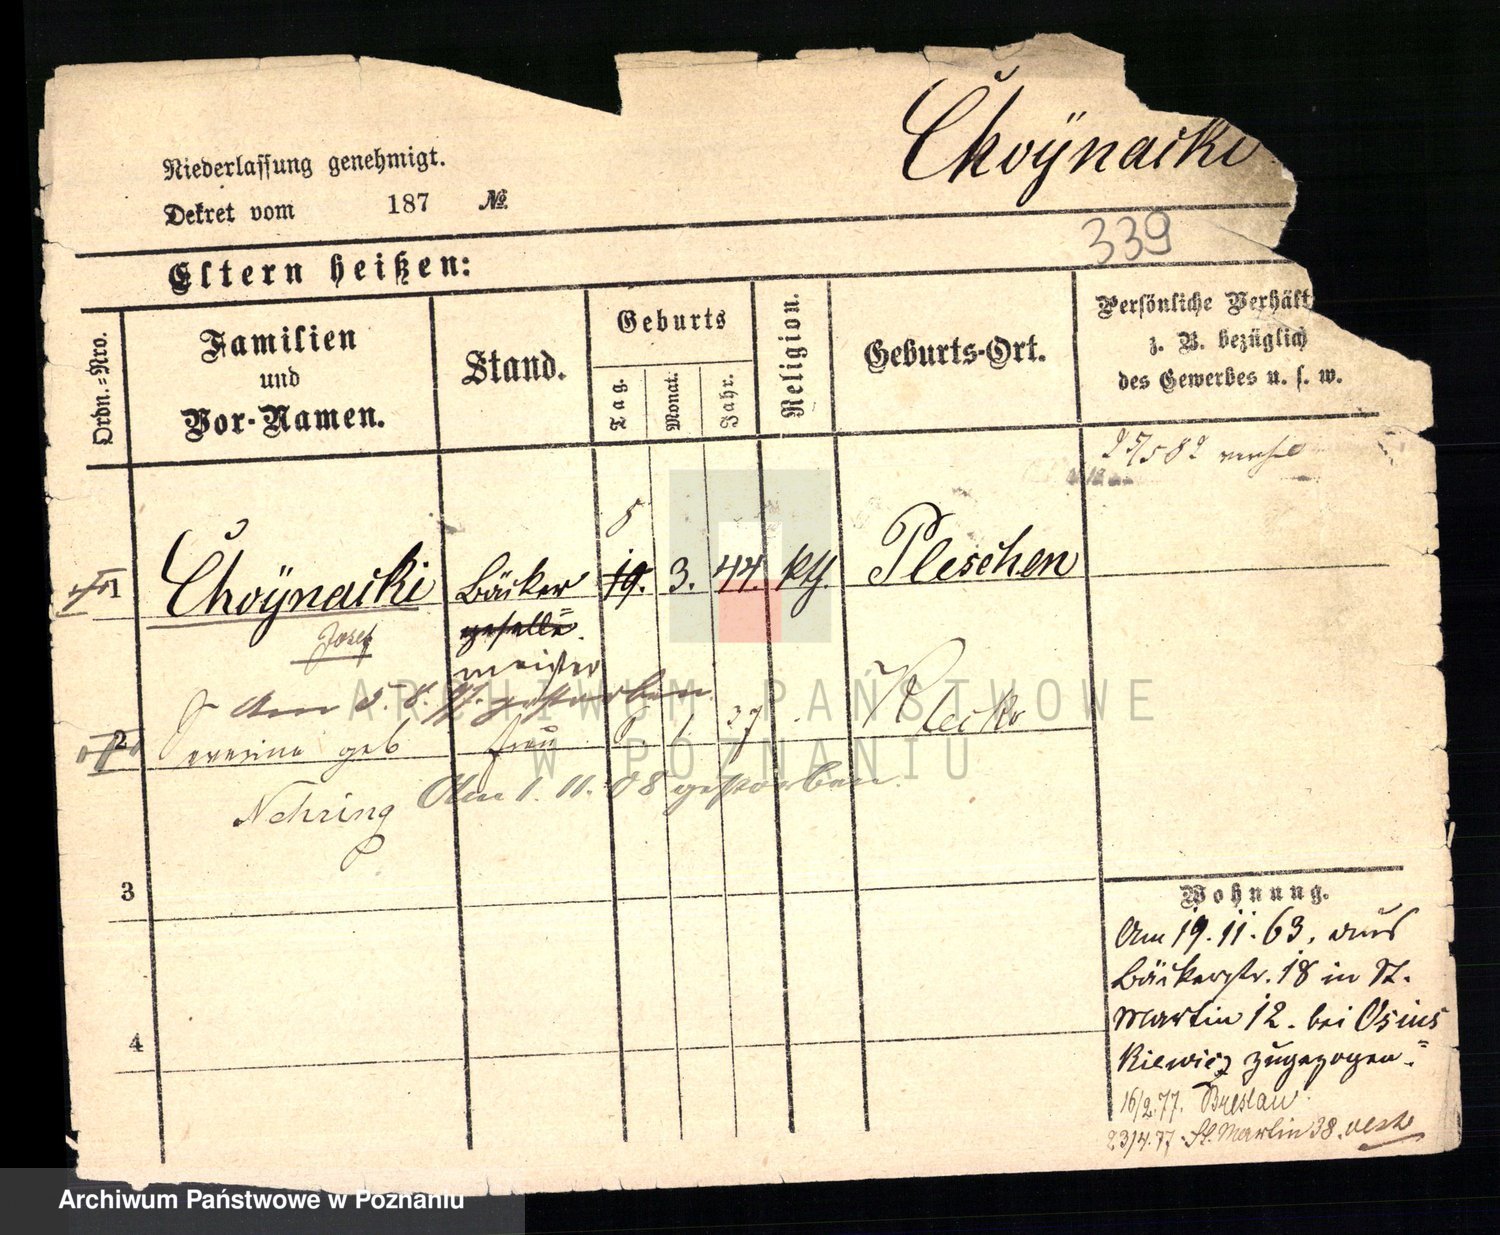 Choÿnacki
Niederlassung genehmigt.
Dekret vom 187 №
339
Eltern heißen:
Ordn.=Nro.
Familien
und
Vor-Namen.
Stand.
Geburts
Tag.
Monat.
Jahr.
Religion.
Geburts-Ort.
Persönliche Verhält
z. B. bezüglich
des Gewerbes u. s. w.
1 Choÿnacki Bäcker 19. 3. 44. kth. Pleschen
8
geselle
Josef
meister
Am 5. 8. gestorben
2 Severina geb Frau 8 1 37 Klecko
Nehring
Am 1. 11. 08 gestorben.
3
4
Wohnung.
Am 19. 11. 63. aus
Bäckerstr. 18 in St.
Martin 12. bei Osins
kiewicz zugezogen.
16/2.77. Breslau
23/4.77. St. Martin 38.
ARCHIWUM PAŃSTWOWE
W POZNANIU
Archiwum Państwowe w Poznaniu